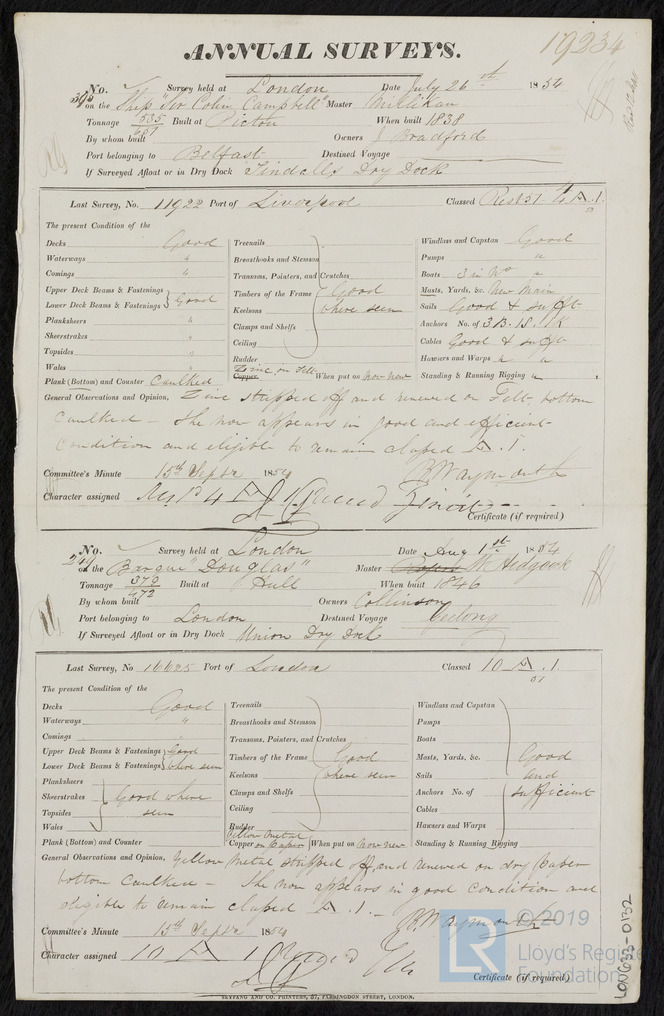 ANNUAL SURVEYS.
19234
No. Survey held at London Date July 26 st 1854
on the Ship "Sir Colin Campbell" Master Millikan
Tonnage 535 Built at Picton When built 1838
By whom built Owners J Bradford
Port belonging to Belfast Destined Voyage
If Surveyed Afloat or in Dry Dock Tindalls Dry Dock
Last Survey, No. 11922 Port of Liverpool Classed A.1.
The present Condition of the
Decks Good Treenails Windlass and Capstan Good
Waterways " Breasthooks and Stemson Pumps "
Comings " Transoms, Pointers, and Crutches Boats 3 in No "
Upper Deck Beams & Fastenings Good Timbers of the Frame Good Masts, Yards, &c. New Main
Lower Deck Beams & Fastenings Keelsons where seen Sails Good & sufft
Planksheers " Clamps and Shelfs Anchors No. of 3B. 1S. 1K
Sheerstrakes " Ceiling Cables Good & sufft
Topsides " Rudder Hawsers and Warps " "
Wales " Zinc on Felt
Plank (Bottom) and Counter Caulked Copper When put on now new Standing & Running Rigging "
General Observations and Opinion, Zinc stripped off and renewed on Felt, bottom
caulked – She now appears in good and efficient
condition and eligible to remain classed A.1.
R Waymouth
Committee's Minute 15th Septr 1854
Character assigned A 1
Certificate (if required)
No. Survey held at London Date Aug 1st 1854
on the Barque "Douglas" Master W. Hedgcock
Tonnage 373 Built at Hull When built 1846
472
By whom built Owners Collinson
Port belonging to London Destined Voyage Geelong
If Surveyed Afloat or in Dry Dock Union Dry Dock
Last Survey, No 16625 Port of London Classed 10 A.1
The present Condition of the
Decks Good Treenails Windlass and Capstan
Waterways " Breasthooks and Stemson Pumps
Comings " Transoms, Pointers, and Crutches Boats
Upper Deck Beams & Fastenings Good Timbers of the Frame Good Masts, Yards, &c. Good
Lower Deck Beams & Fastenings where seen Keelsons where seen Sails and
Planksheers Clamps and Shelfs Anchors No. of sufficient
Sheerstrakes Good where Ceiling Cables
Topsides seen Rudder Hawsers and Warps
Wales Yellow Metal
Plank (Bottom) and Counter Copper on Paper When put on now new Standing & Running Rigging
General Observations and Opinion, Yellow Metal stripped off, and renewed on dry paper
bottom caulked – She now appears in good condition and
eligible to remain classed A.1. –
R. Waymouth
Committee's Minute 15th Septr 1854
Character assigned 10 A 1
Certificate (if required)
SEYFANG AND CO. PRINTERS, 57, FARRINGDON STREET, LONDON.
LON635-0132
LR
© 2019
Lloyd's Register
Foundation